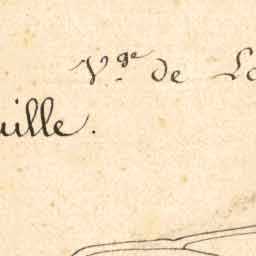 V.ge de Lo
uille.